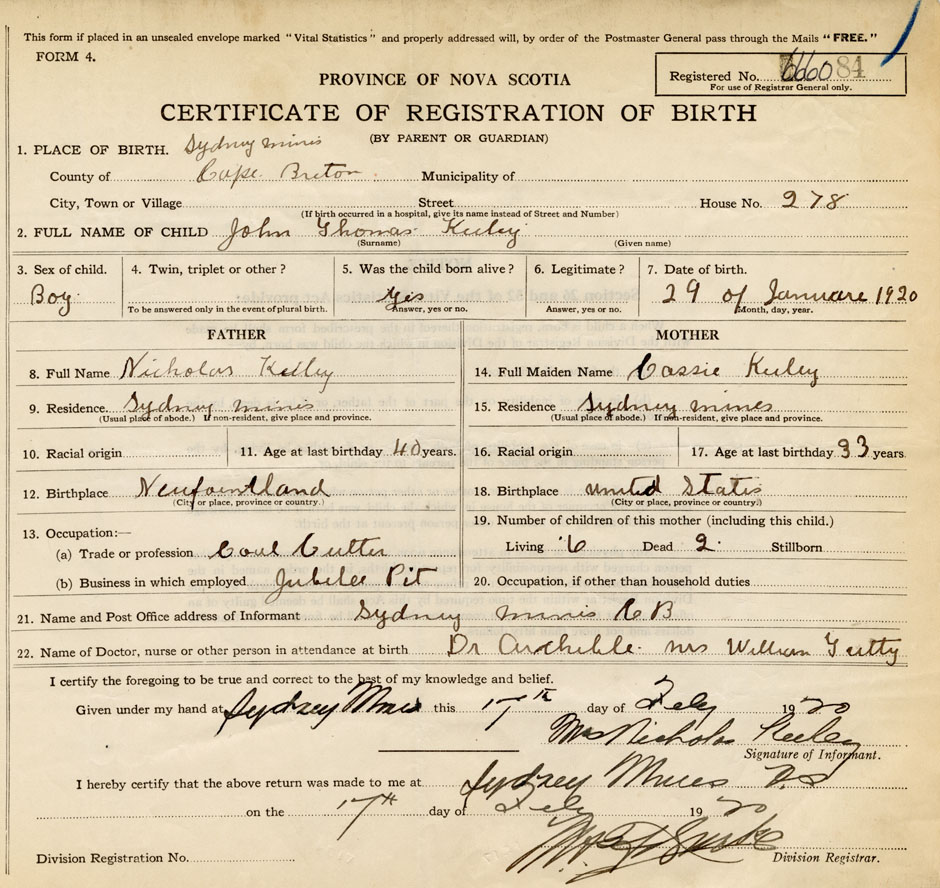 This form if placed in an unsealed envelope marked "Vital Statistics" and properly addressed will, by order of the Postmaster General pass through the Mails "FREE."
FORM 4.
PROVINCE OF NOVA SCOTIA
Registered No. 6660 84
For use of Registrar General only.
CERTIFICATE OF REGISTRATION OF BIRTH
(BY PARENT OR GUARDIAN)
1. PLACE OF BIRTH. Sydney mines
County of Cape Breton Municipality of
City, Town or Village Street House No. 278
(If birth occurred in a hospital, give its name instead of Street and Number)
2. FULL NAME OF CHILD John Thomas Keeley
(Surname) (Given name)
3. Sex of child. 4. Twin, triplet or other? 5. Was the child born alive? 6. Legitimate? 7. Date of birth.
Boy Yes 29 of Januare 1920
To be answered only in the event of plural birth. Answer, yes or no. Answer, yes or no. Month, day, year.
FATHER MOTHER
8. Full Name Nicholas Keeley 14. Full Maiden Name Cassie Keeley
9. Residence. Sydney mines 15. Residence Sydney mines
(Usual place of abode.) If non-resident, give place and province. (Usual place of abode.) If non-resident, give place and province.
10. Racial origin 11. Age at last birthday 40 years. 16. Racial origin 17. Age at last birthday 33 years.
12. Birthplace Newfointland 18. Birthplace united States
(City or place, province or country.) (City or place, province or country.)
19. Number of children of this mother (including this child.)
13. Occupation:—
(a) Trade or profession Coul Cutter Living 6 Dead 2 Stillborn
(b) Business in which employed Jubilee Pit 20. Occupation, if other than household duties
21. Name and Post Office address of Informant Sydney mines C B
22. Name of Doctor, nurse or other person in attendance at birth Dr mrs William
I certify the foregoing to be true and correct to the best of my knowledge and belief.
Given under my hand at Sydney Mines this 17th day of Feby 1920
Mrs Nicholas Keeley
Signature of Informant.
I hereby certify that the above return was made to me at Sydney Mines N.S
on the 17th day of Feby 1920
Division Registration No. Division Registrar.